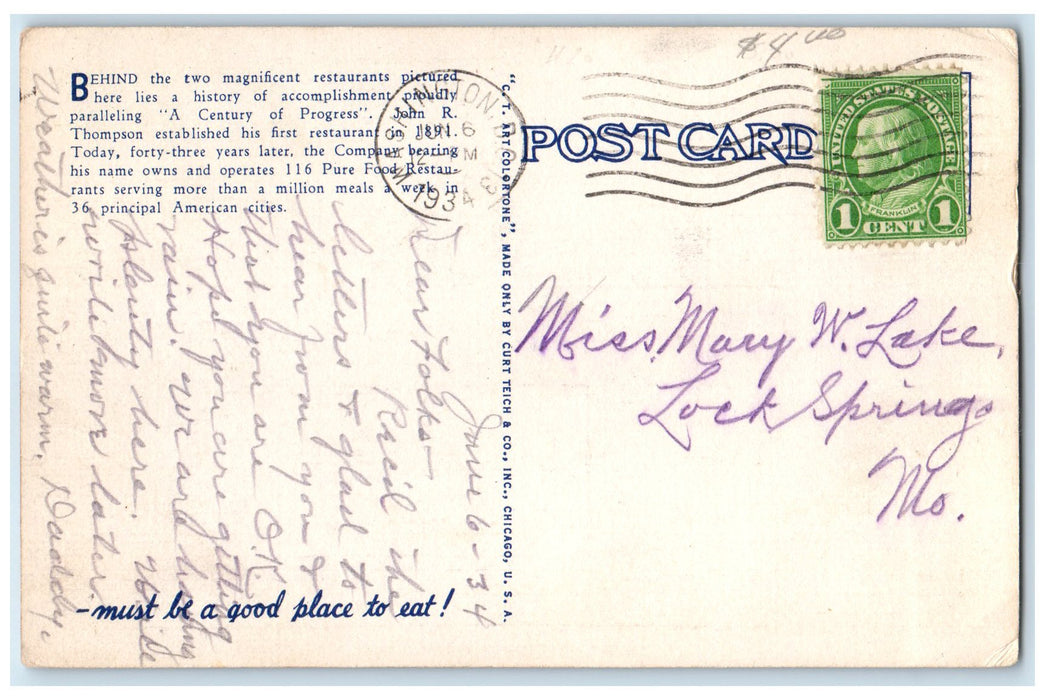 $4.00
BEHIND the two magnificent restaurants pictured
here lies a history of accomplishment proudly
paralleling "A Century of Progress". John R.
Thompson established his first restaurant in 1891.
Today, forty-three years later, the Company bearing
his name owns and operates 116 Pure Food Restau-
rants serving more than a million meals a week in
36 principal American cities.
-must be a good place to eat!
WASHINGTON
JUN 6
M
1934
"C. T. ART COLORTONE", MADE ONLY BY CURT TEICH & CO., INC., CHICAGO, U. S. A.
POST CARD
UNITED STATES POSTAGE
FRANKLIN
1 CENT 1
Miss Mary W. Lake,
Lock Springs
Mo.
June 6-34
Dear Folks-
Rec'd the
letters & glad to
hear from you &
that you are O.K.
Hope you are getting
rain. We are having
plenty here. Will
write more later.
Weather is quite warm. Daddy.